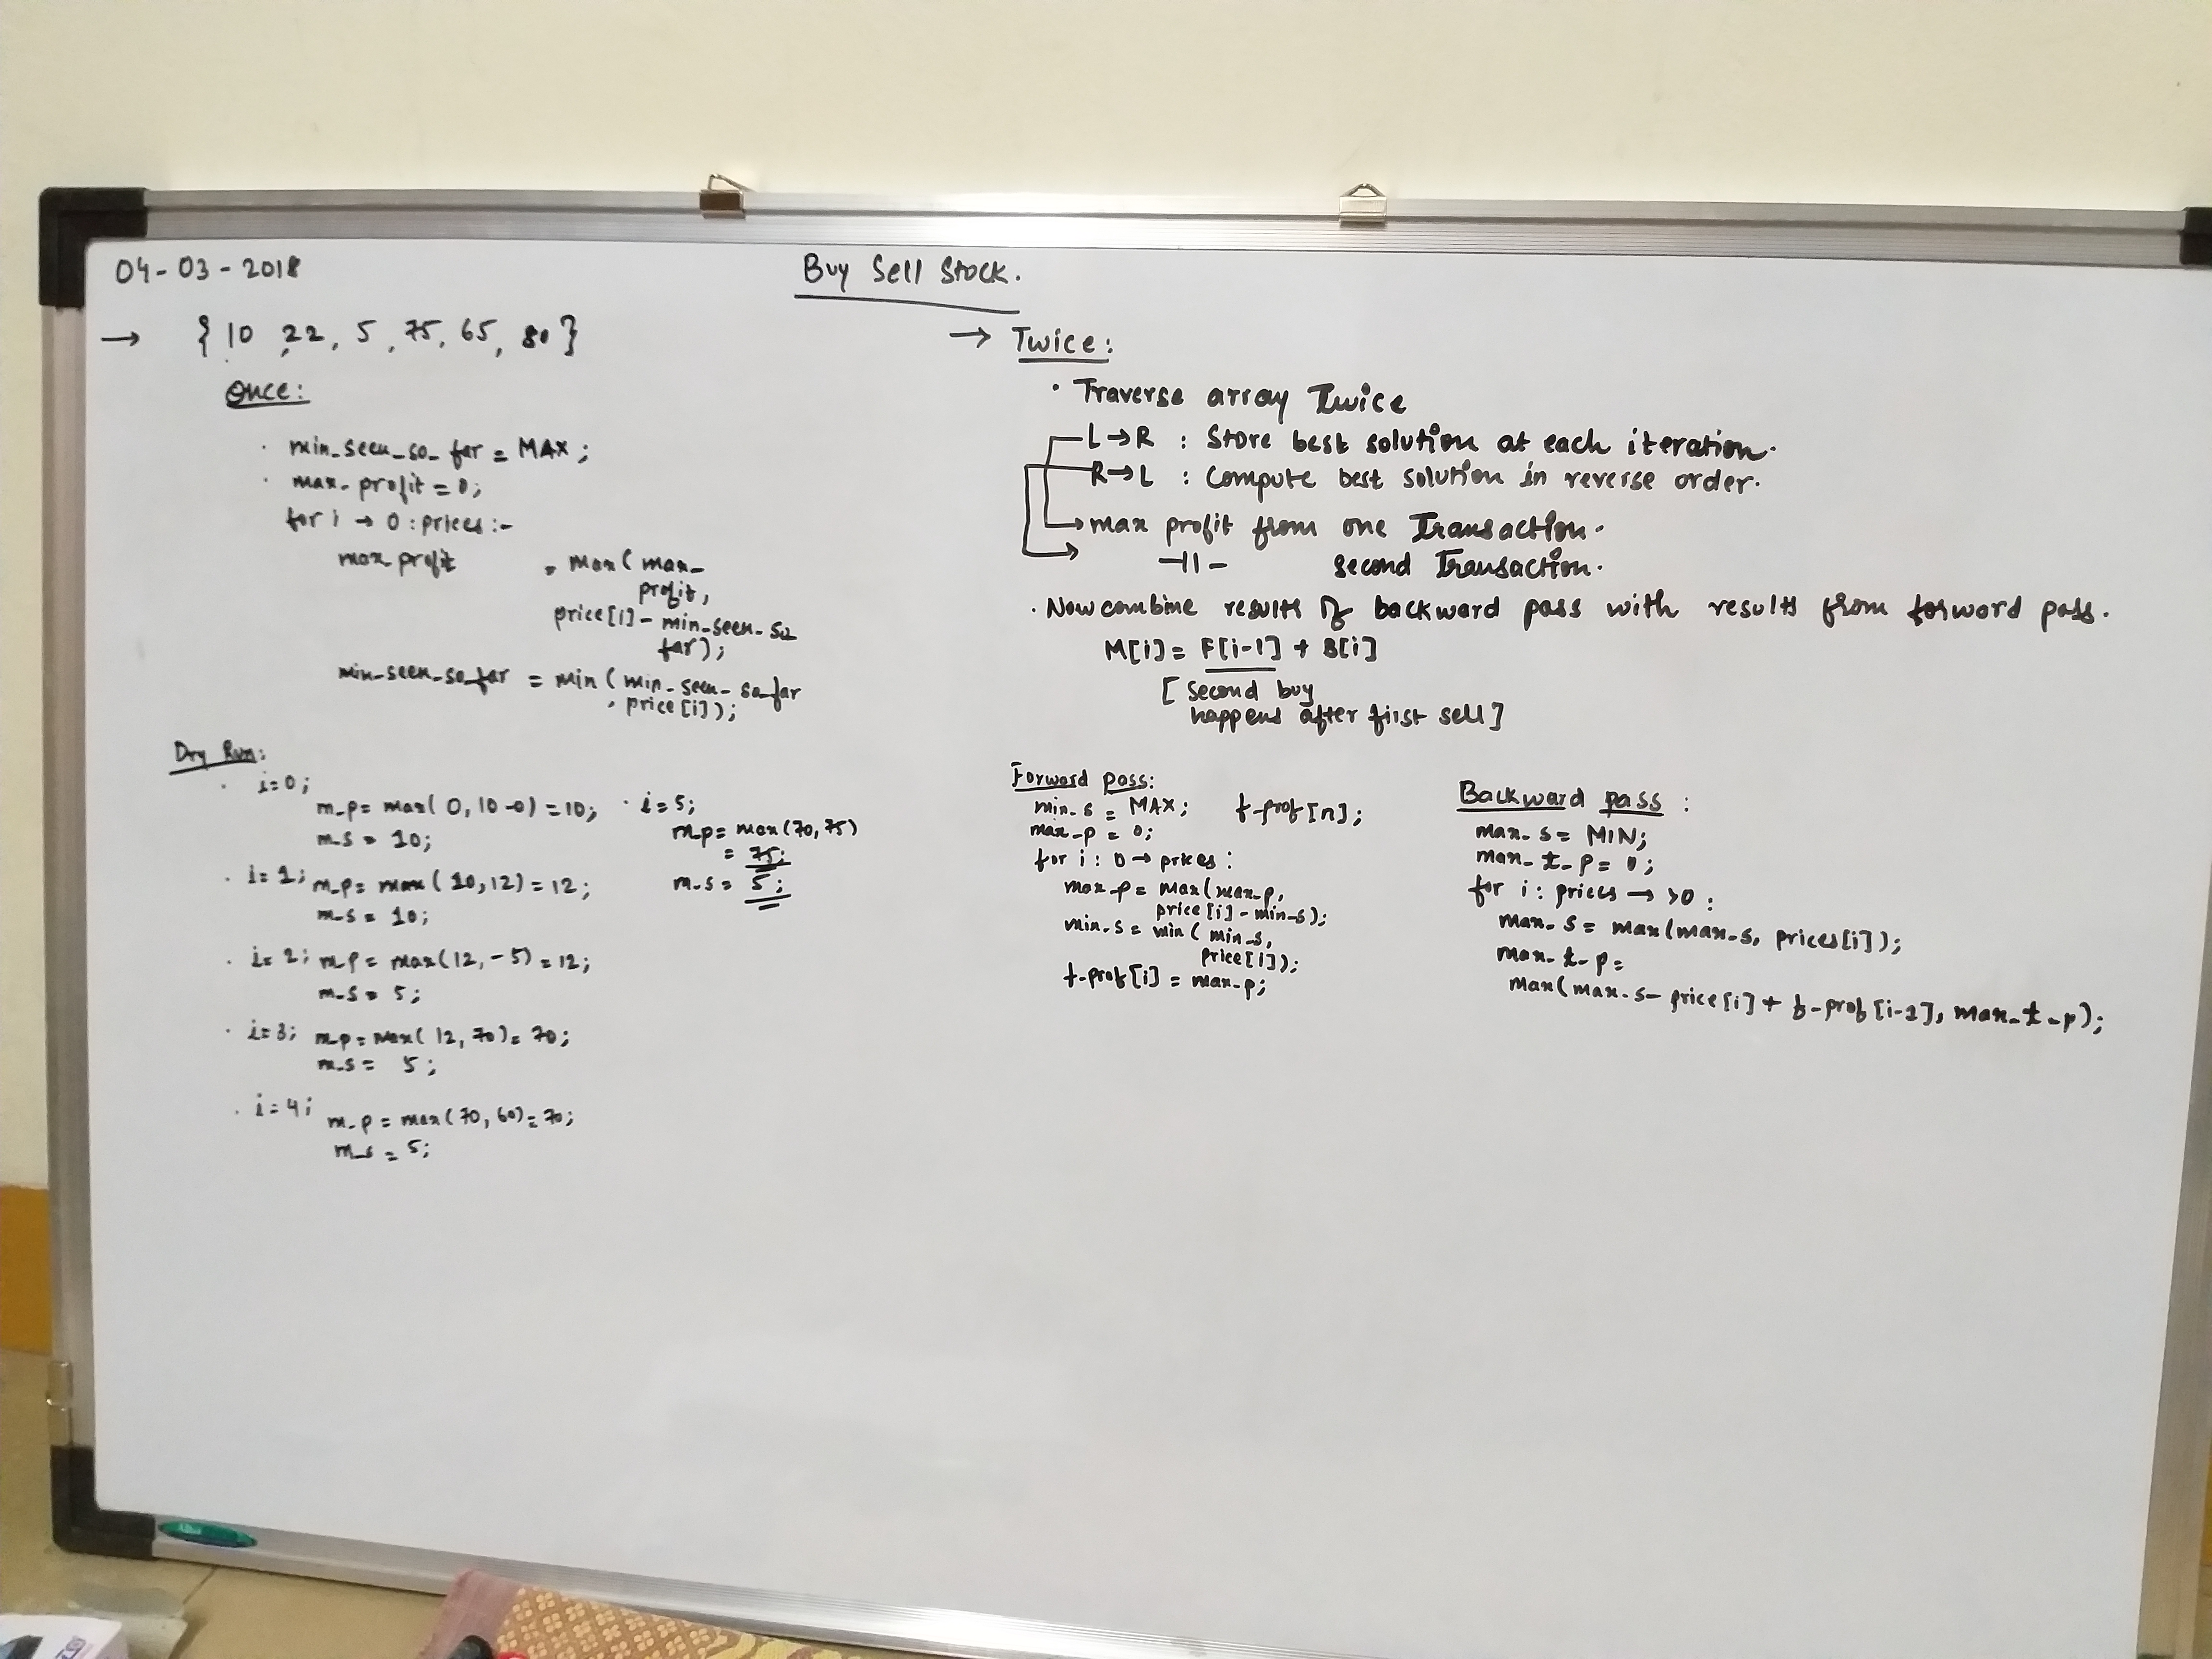 04-03-2018
Buy Sell Stock.
→ { 10, 22, 5, 75, 65, 80 }
Once:
· min_seen_so_far = MAX;
· max_profit = 0;
for i → 0 : prices :-
max profit = max( max_
profit,
price[i] - min_seen_so
far);
min_seen_so_far = min ( min_seen_so_far
, price[i]);
Dry Run:
· i=0;
m_p = max( 0, 10-0) = 10;
m_s = 10;
· i=1; m_p = max( 10,12) = 12;
m_s = 10;
· i=2; m_p = max(12, -5) = 12;
m_s = 5;
· i=3; m_p = max( 12, 70) = 70;
m_s = 5;
· i=4; m_p = max( 70, 60) = 70;
m_s = 5;
· i=5;
m_p = max(70,75)
= 75;
m_s = 5;
→ Twice:
· Traverse array Twice
L→R : Store best solution at each iteration.
R→L : Compute best solution in reverse order.
→ max profit from one Transaction.
→ -||- second Transaction.
· Now combine results of backward pass with results from forward pass.
M[i] = F[i-1] + B[i]
[ second buy
happens after first sell]
Forward pass:
min_s = MAX; f_prof[n];
max_p = 0;
for i : 0 → prices :
max_p = max(max_p,
price[i] - min_s);
min_s = min ( min_s,
price[i]);
f_prof[i] = max_p;
Backward pass :
max_s = MIN;
max_t_p = 0;
for i : prices → >0 :
max_s = max(max_s, prices[i]);
max_t_p =
max(max_s - price[i] + f_prof[i-1], max_t_p);